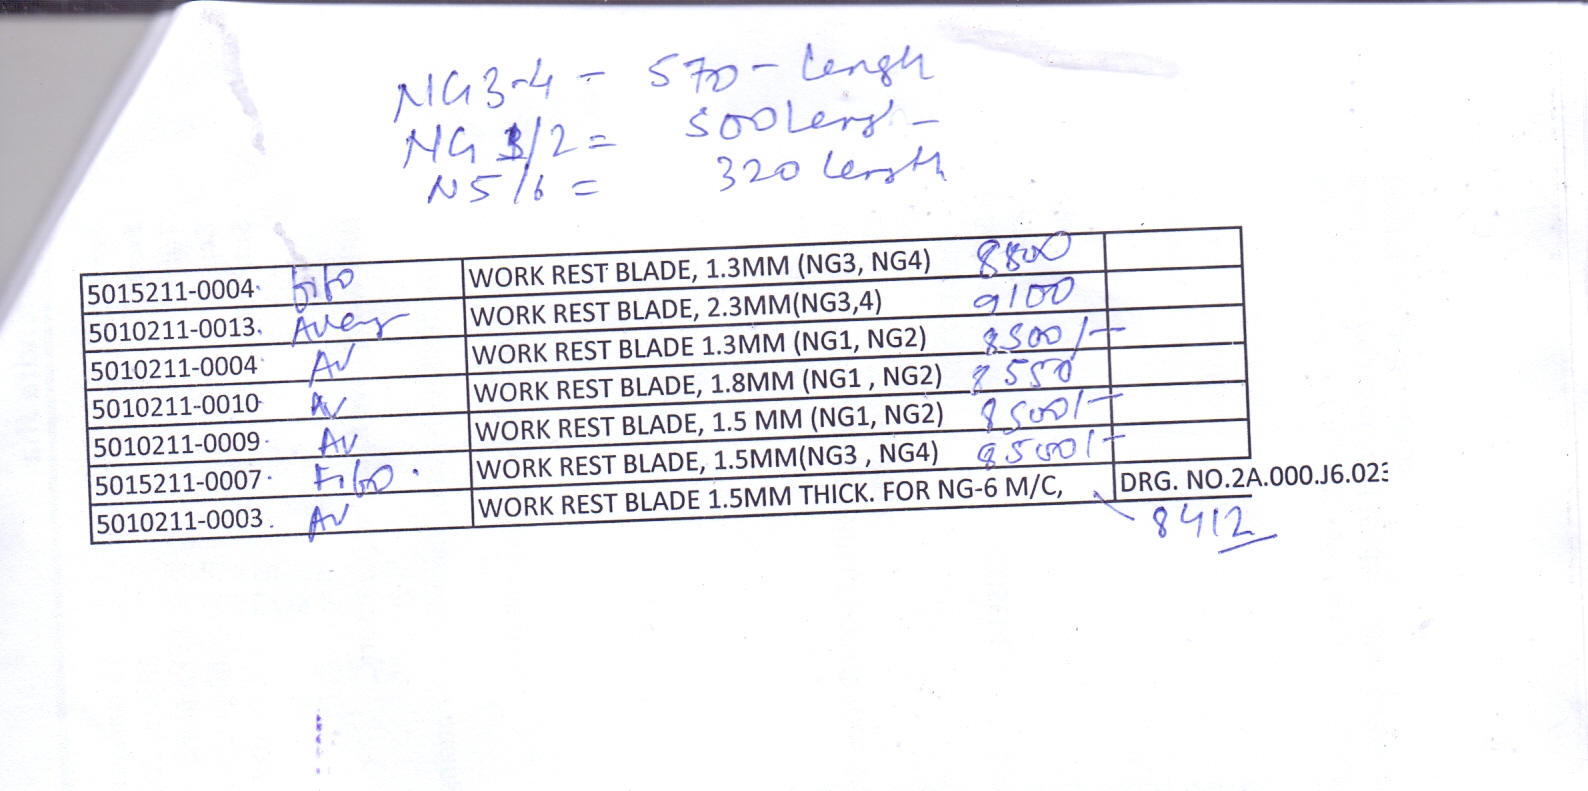 NG3-4 = 570 - Length
NG 1/2 = 500 Length -
N5/6 = 320 length
5015211-0004. Fifo WORK REST BLADE, 1.3MM (NG3, NG4) 8800
5010211-0013. Averg WORK REST BLADE, 2.3MM(NG3,4) 9100
5010211-0004 AV WORK REST BLADE 1.3MM (NG1, NG2) 8500/-
5010211-0010 AV WORK REST BLADE, 1.8MM (NG1 , NG2) 8550
5010211-0009. AV WORK REST BLADE, 1.5 MM (NG1, NG2) 8500/-
5015211-0007. Fifo. WORK REST BLADE, 1.5MM(NG3 , NG4) 8500/-
5010211-0003. AV WORK REST BLADE 1.5MM THICK. FOR NG-6 M/C, DRG. NO.2A.000.J6.023
8412